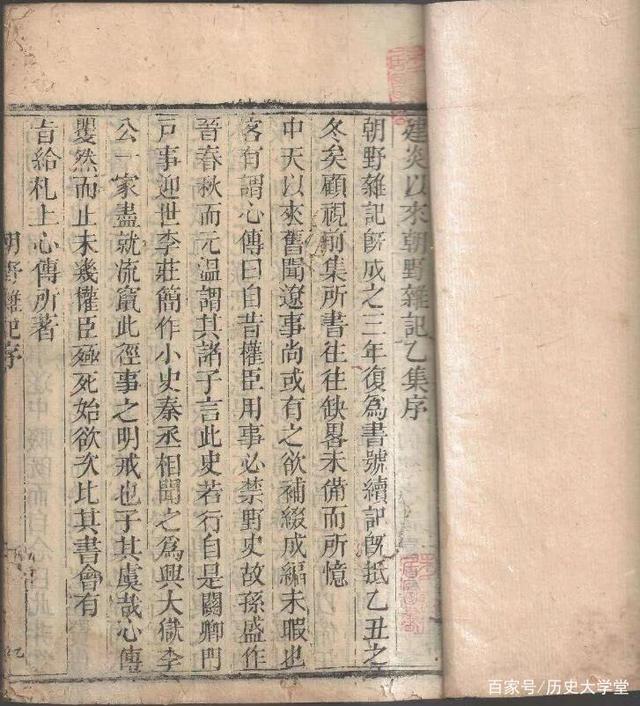 建炎以來朝野雜記乙集序
朝野雜記旣成之三年復爲書號續記旣抵乙丑之
冬矣顧視前集所書往往缺畧未備而所憶
中天以來舊聞遼事尚或有之欲補綴成編未暇也
客有謂心傳曰自昔權臣用事必禁野史故孫盛作
晉春秋而元溫謂其諸子言此史若行自是關卿門
戸事迎世李莊簡作小史秦丞相聞之爲興大獄李
公一家盡就流竄此徑事之明戒也子其虞哉心傳
矍然而止未幾權臣殛死始欲次比其書會有
旨給札上心傳所著
朝野雜記序
百家号/历史大学堂